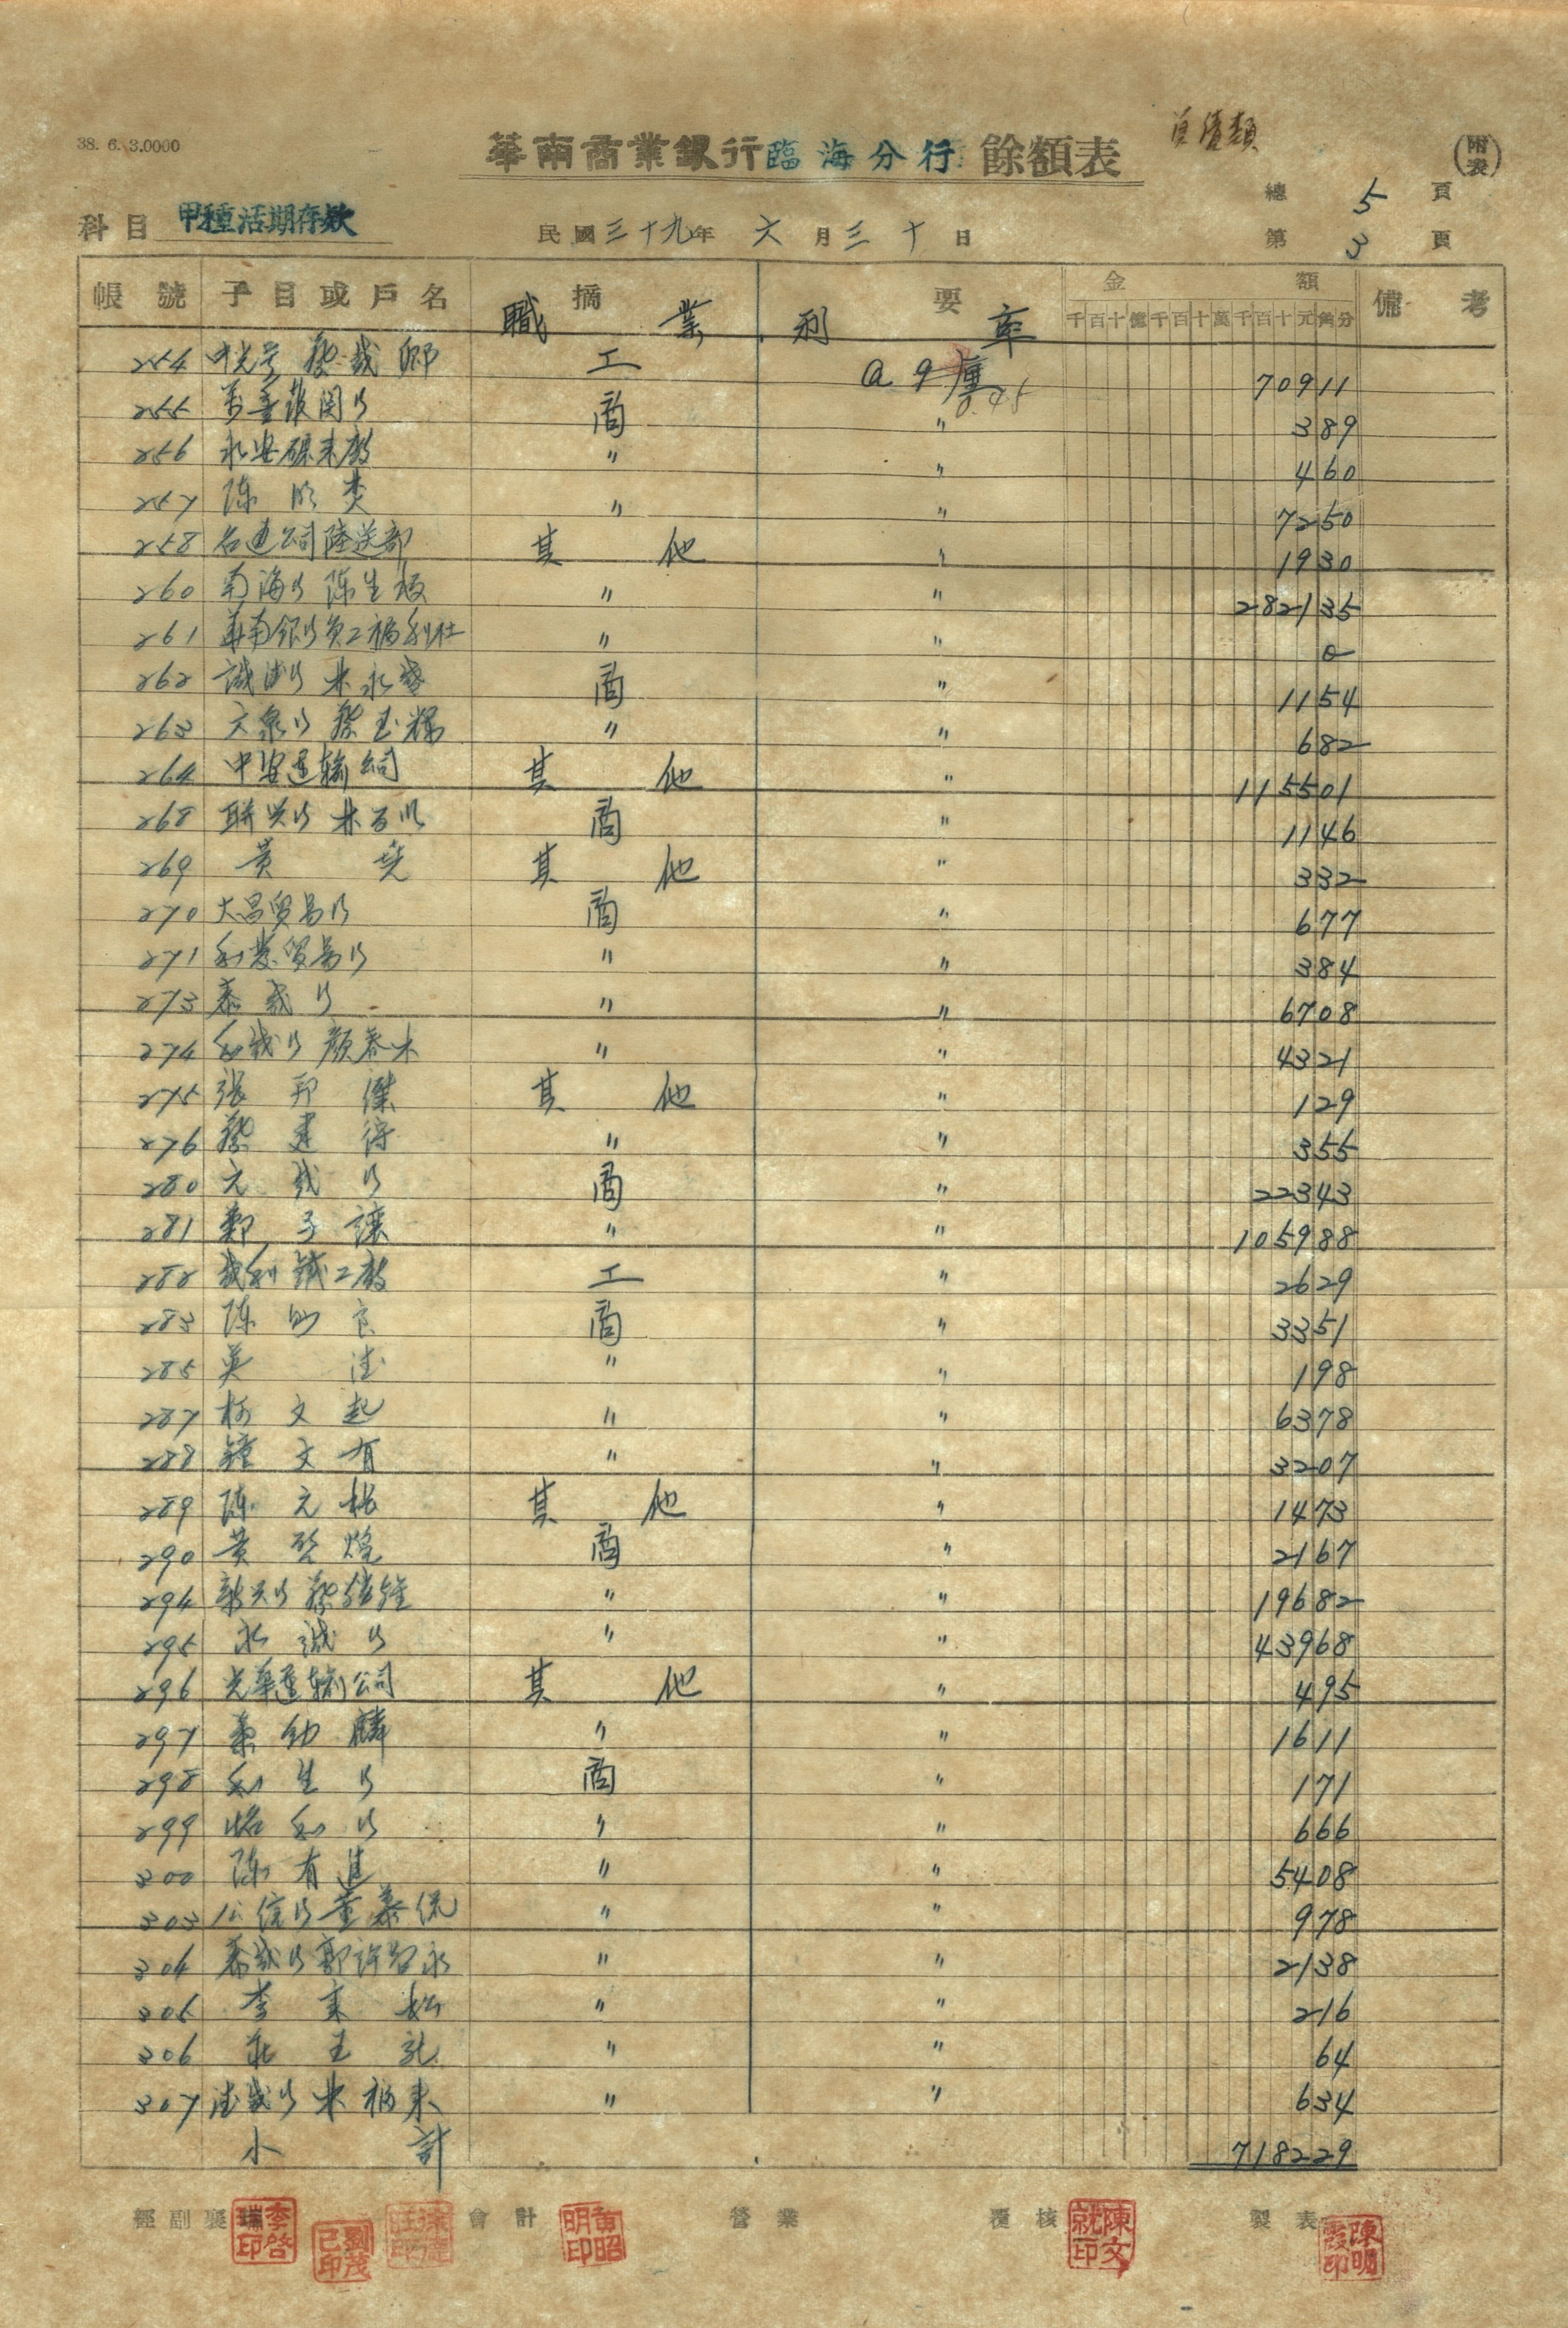 38. 6. 3.0000
華南商業銀行臨海分行 餘額表 負債類 (附表)
總 5 頁
科目 甲種活期存款 民國三十九年 六月三十日 第 3 頁
帳號 子目或戶名 摘 要 金額 備考
職業 利率
千百十億千百十萬千百十元角分
254 蔡裁鄉 工 @ 9 70911
0.45
255 報関行 商 〃 389
256 永安碾米廠 〃 〃 460
257 陳 〃 〃 7250
258 台運公司陸送部 其他 〃 1930
260 南海行 陳生板 〃 〃 282135
261 華南銀行員工福利社 〃 〃 0
262 行 林永 商 〃 1154
263 大泉行 蔡玉 〃 〃 682
264 中安運輸公司 其他 〃 115501
268 聯興行 林 商 〃 1146
269 黃堯 其他 〃 332
270 大昌貿易行 商 〃 677
271 利發貿易行 〃 〃 384
273 泰成行 〃 〃 6708
274 利成行 顏春木 〃 〃 4321
275 張邦傑 其他 〃 129
276 蔡建 〃 〃 355
280 元成行 商 〃 22343
281 鄭子讓 〃 〃 105988
282 成利鐵工廠 工 〃 2629
283 陳 良 商 〃 3351
285 吳 〃 〃 198
287 柯文起 〃 〃 6378
288 鐘文有 〃 〃 3207
289 陳元 其他 〃 1473
290 黃啓煌 商 〃 2167
294 新興行 蔡 〃 〃 19682
295 永誠行 〃 〃 43968
296 光華運輸公司 其他 〃 495
297 葉 麟 〃 〃 1611
298 利生行 商 〃 171
299 裕利行 〃 〃 666
300 陳有進 〃 〃 5408
303 公信行 董 〃 〃 978
304 泰成行 郭許 永 〃 〃 2138
305 李來松 〃 〃 216
306 玉 〃 〃 64
307 行 林 來 〃 〃 634
小計 718229
經副襄 會計 營業 覆核 製表
李啓瑞印 劉茂己印 黃昭明印 陳文就印 陳明霞印